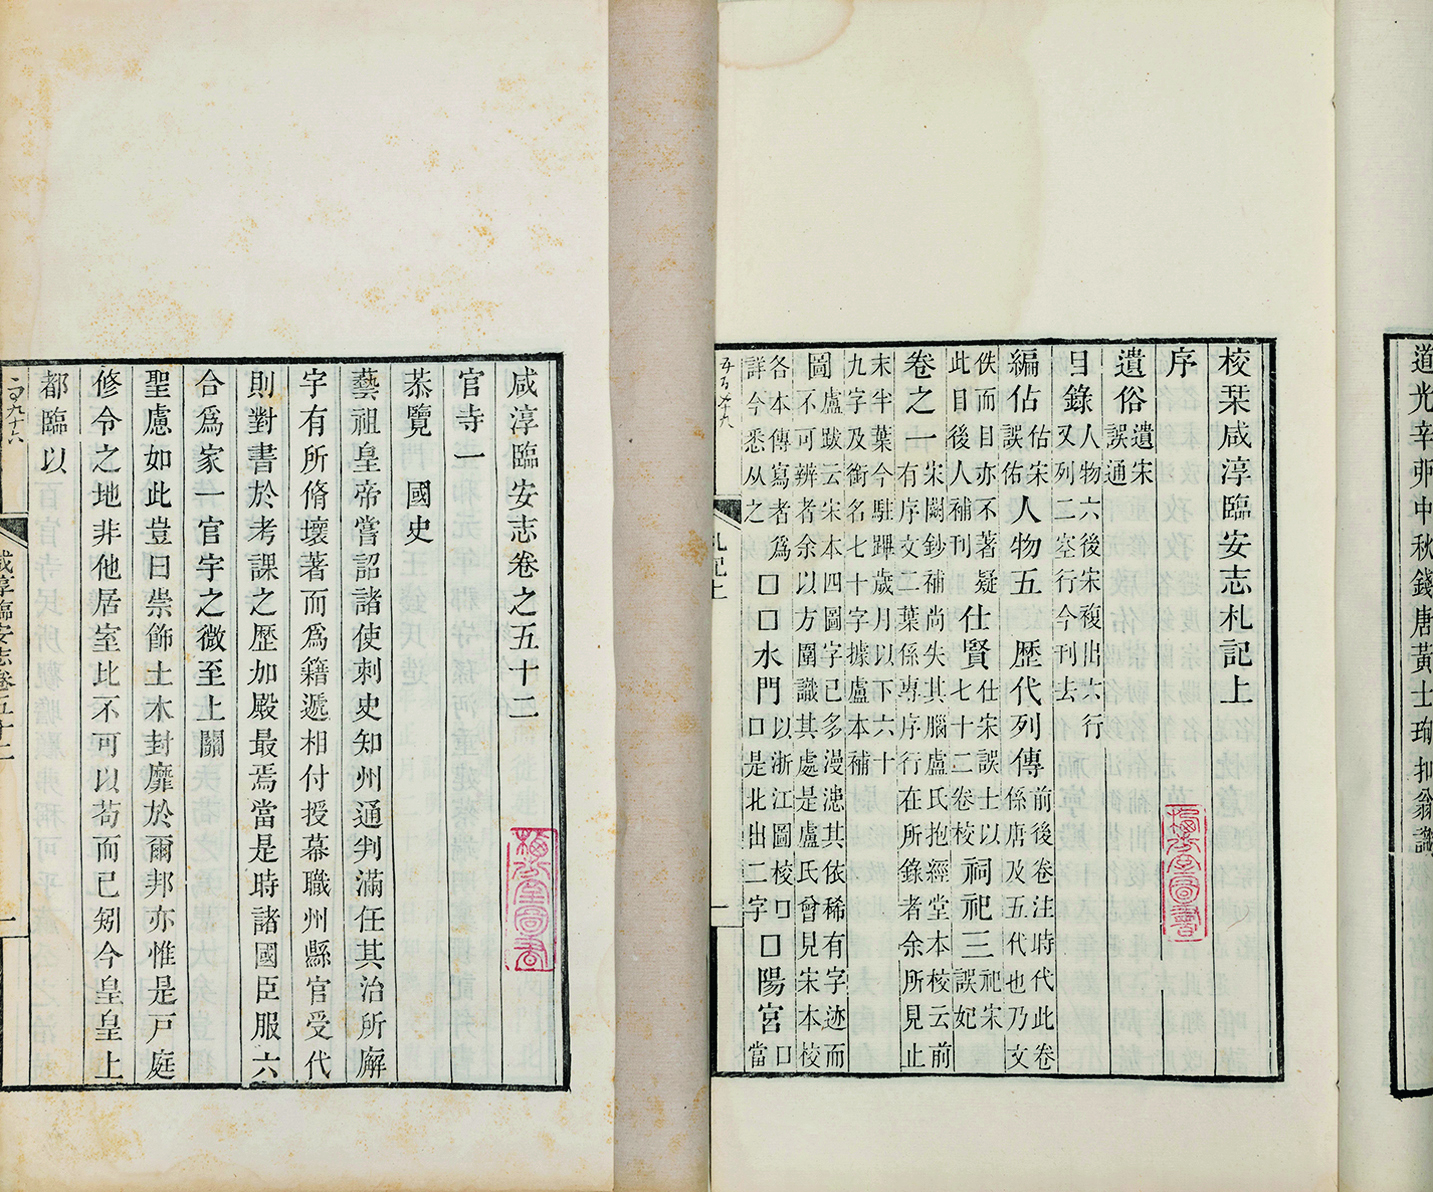 道光辛卯中秋錢唐黃士珣抑翁識
校栞咸淳臨安志札記上
序
遺俗遺宋誤通
目錄人物六後宋複出六行又列二空行今刊去
編佑佑宋誤佑人物五 歷代列傳前後卷注時代此卷係唐及五代也乃文
佚而目亦不著疑此目後人補刊仕賢仕宋誤士以七十二卷校祠祀三祀宋誤妃
卷之一宋闕鈔補尚失其腦盧氏抱經堂本校云前有序文二葉係專序行在所錄者余所見止
末半葉今駐蹕歲月以下六十九字及銜名七十字據盧本補
圖盧跋云宋本四圖字已多漫漶其依稀有字迹而不可辨者余以方圍識其處是盧氏曾見宋本校
各本傳寫者爲□□水門以浙江圖校□□陽宮□當
詳今悉从之□是北出二字
札記上
一
咸淳臨安志卷之五十二
官寺一
恭覽 國史
藝祖皇帝嘗詔諸使刺史知州通判滿任其治所廨
字有所脩壞著而爲籍遞相付授幕職州縣官受代
則對書於考課之歷加殿最焉當是時諸國臣服六
合爲家一官宇之微至上關
聖慮如此豈曰崇飾土木封靡於爾邦亦惟是戸庭
修令之地非他居室比不可以苟而已矧今皇皇上
都臨以
咸淳臨安志卷五十二
一